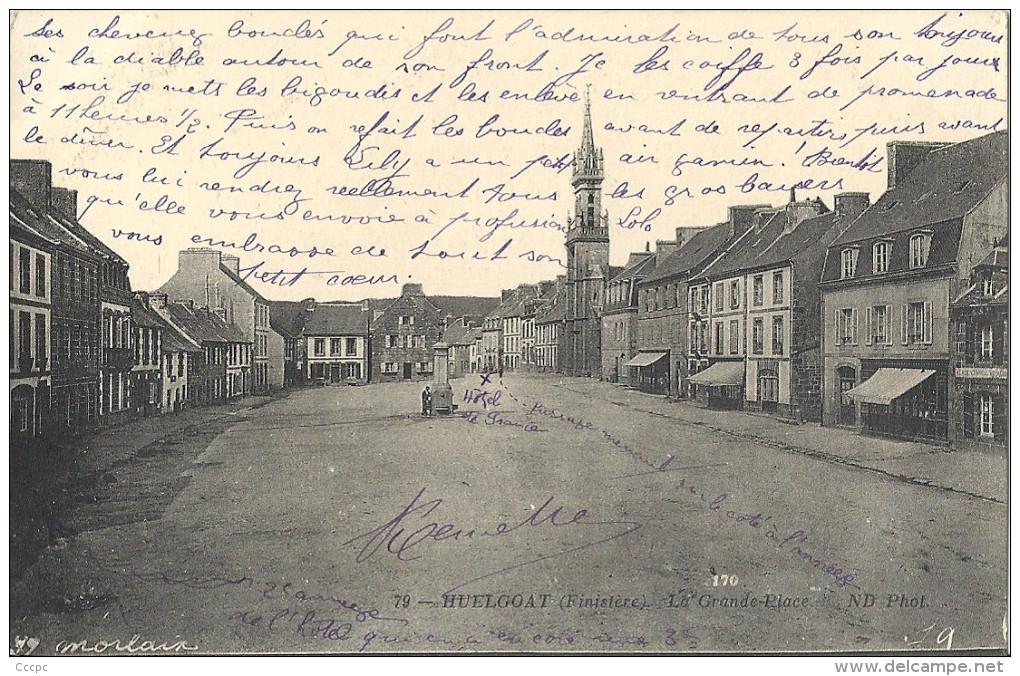 ses cheveux bouclés qui font l'admiration de tous son toujours
à la diable autour de son front. Je les coiffe 3 fois par jour
Le soir je mets les bigoudis et les enlève en rentrant de promenade
à 11 heures 1/2. Puis on refait les boucles avant de repartir, puis avant
le dîner. Et toujours Lily a un petit air gamin. Bientôt
vous lui rendrez réellement tous les gros baisers
qu'elle vous envoie à profusion Lolo
vous embrasse de tout son
petit coeur.
X
Hôtel
de France
passage menant
sur le coté à l'annexe
Remette
2e annexe
de l'hôtel qui en a encore une 3e
170
79 - HUELGOAT (Finistère). La Grande-Place ND Phot.
79 morlaix
19
Cccpc
www.delcampe.net